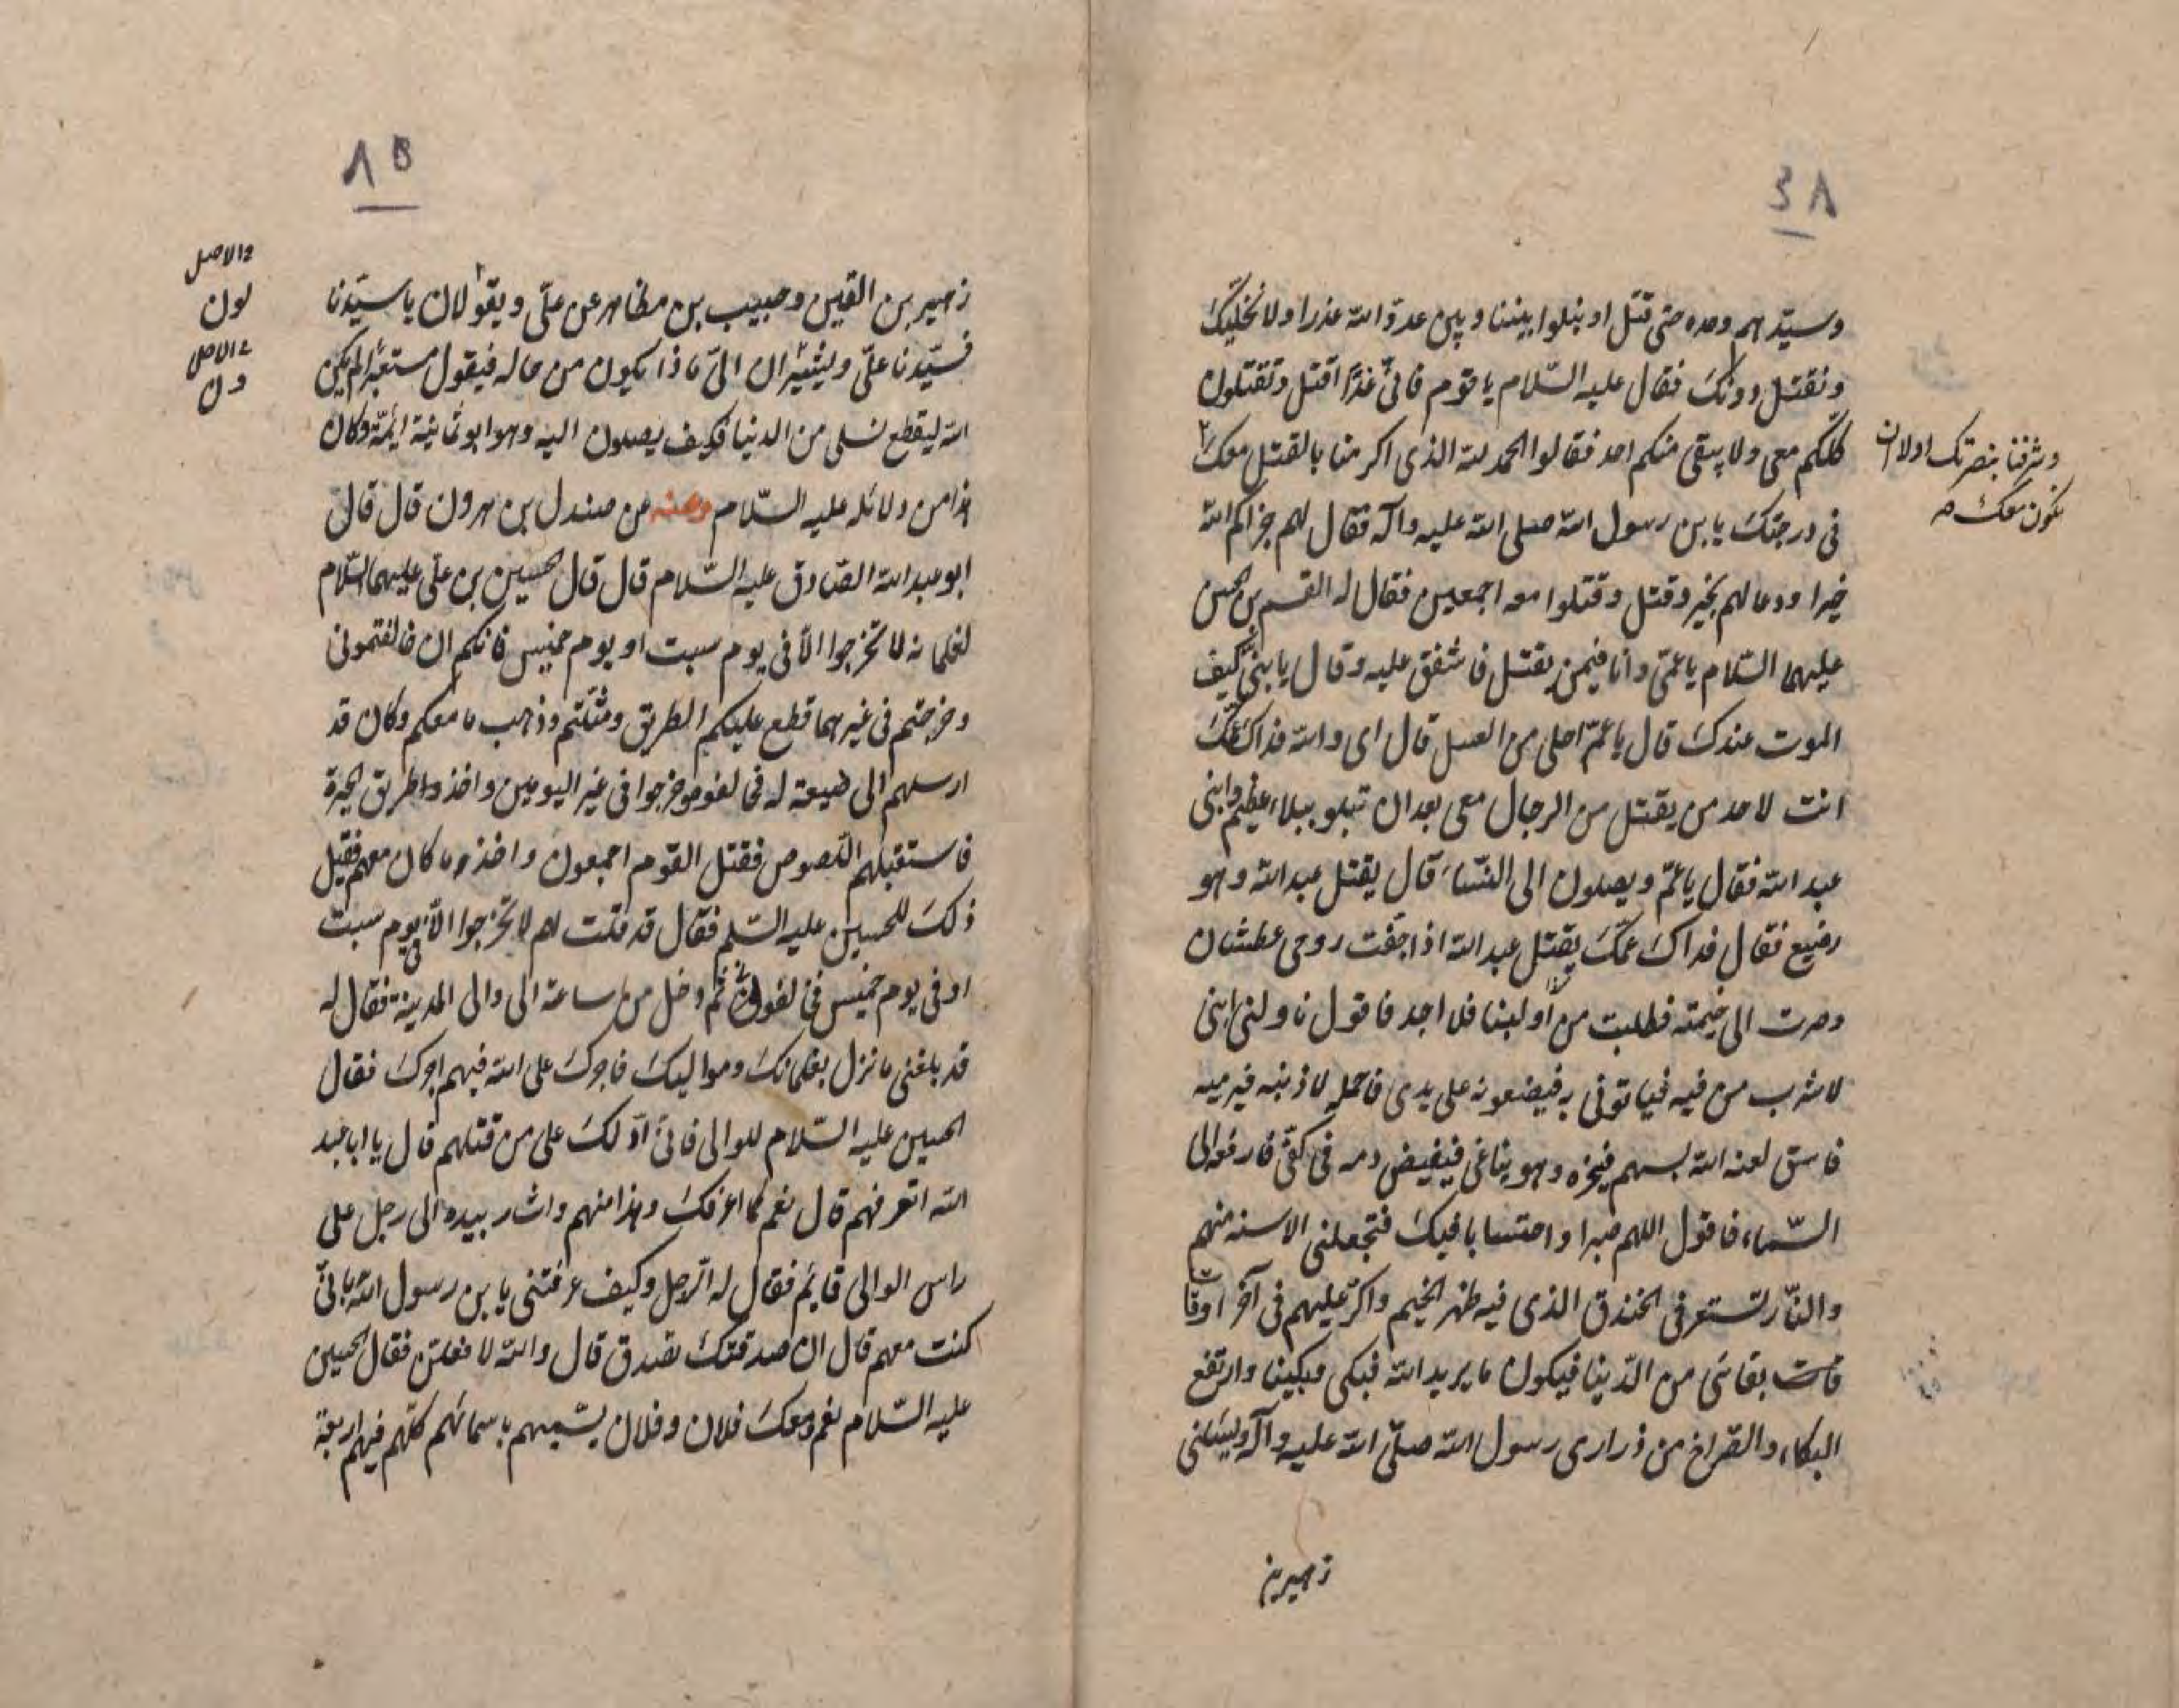 ٨٤
وسيدهم وحده حتى قتل او ينلوا بيننا وبين عدو الله عذرا ولا نخليك
ونقتل دونك فقال عليه السلام يا قوم فانى غدا اقتل وتقتلون
كلكم معى ولا يبقى منكم احد فقالوا الحمد لله الذى اكرمنا بالقتل معك
وشرفنا بنصرتك اولا ان
نكون معك
فى درجتك يا بن رسول الله صلى الله عليه وآله فقال لهم جزاكم الله
خيرا ودعا لهم بخير وقتل وقتلوا معه اجمعين فقال له القسم بن الحسن
عليهما السلام يا عمى وانا فيمن يقتل فاشفق عليه وقال يا بنى كيف
الموت عندك قال يا عم احلى من العسل قال اى والله فداك عمك
انت لاحد من يقتل من الرجال معى بعد ان تبلو ببلاء عظيم وابنى
عبد الله فقال يا عم ويصلون الى النساء قال يقتل عبد الله وهو
رضيع فقال فداك عمك يقتل عبد الله اذا جفت روحى عطشان
وصرت الى خيمته فطلبت من أو لبنا فلا اجد فاقول ناولنى ابنى
لاشرب من فيه فياتونى به فيضعونه على يدى فاحمله لاذنيه فيرميه
فاسق لعنه الله بسهم فينحره وهو يناغى فيفيض دمه فى كفى فارفعه الى
السماء فاقول اللهم صبرا واحتسابا فيك فتجعلنى الاسنة منهم
والنار تستعر فى الخندق الذى فيه ظهر الخيم واكر عليهم فى آخر اوقات
بقائى من الدنيا فيكون ما يريد الله فبكى وبكينا وارتفع
البكاء والصراخ من ذرارى رسول الله صلى الله عليه وآله ويسئلنى
زهير بن
٨٥
زهير بن القين وحبيب بن مظاهر عن على ويقولان يا سيدنا
فسيدنا على ويشيران الى ماذا يكون من حاله فيقول مستعبرا لم يكن
الله ليقطع نسلى من الدنيا فكيف يصلون اليه وهو ابو ثمانية ايمة وكان
هذا من دلائله عليه السلام وعنه عن صندل بن هرون قال قال
ابو عبد الله الصادق عليه السلام قال قال حسين بن على عليهما السلام
لغلمانه لا تخرجوا الا فى يوم سبت او يوم خميس فانكم ان خالفتمونى
وخرجتم فى غيرهما قطع عليكم الطريق وقتلتم وذهب ما معكم وكان قد
ارسلهم الى ضيعة له فخالفوه وخرجوا فى غير اليومين واخذوا طريق الحرة
فاستقبلهم اللصوص فقتل القوم اجمعون واخذوا ما كان معهم فقيل
ذلك للحسين عليه السلم فقال قد قلت لهم لا تخرجوا الا فى يوم سبت
او فى يوم خميس فخالفونى ثم دخل من ساعة الى والى المدينة فقال له
قد بلغنى ما نزل بغلمانك ومواليك فاجرك على الله فيهم اجرك فقال
الحسين عليه السلام للوالى فانى ادلك على من قتلهم قال يا ابا عبد
الله اتعرفهم قال نعم كما اعرفك وهذا منهم واشار بيده الى رجل على
راس الوالى قايم فقال له الرجل وكيف عرفتنى يا بن رسول الله بانى
كنت معهم قال ان صدقتك تصدق قال والله لافعلن فقال الحسين
عليه السلام نعم ومعك فلان وفلان يسميهم باسمائهم كلهم فيهم اربعة
فى الاصل
لون
فى الاصل
ون